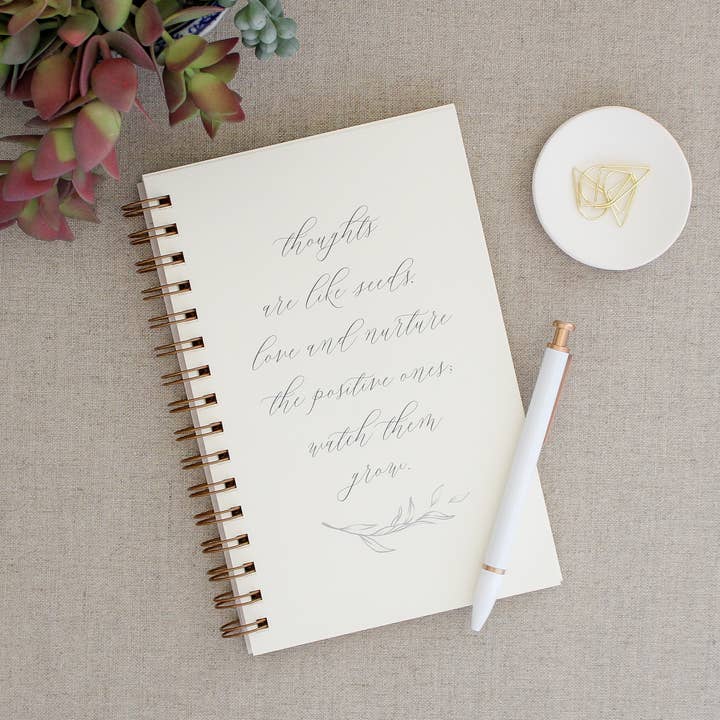 thoughts
are like seeds.
love and nurture
the positive ones;
watch them
grow.